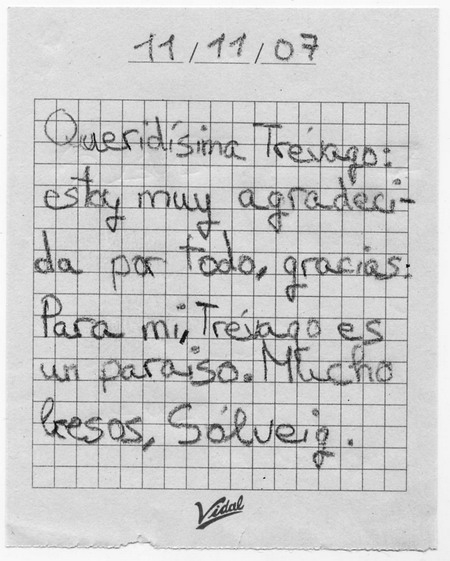 11/11/07
Queridísima Trévago:
estoy muy agradeci-
da por todo, gracias:
Para mi, Trévago es
un paraiso. Mucho
besos, Sólveig.
Vidal